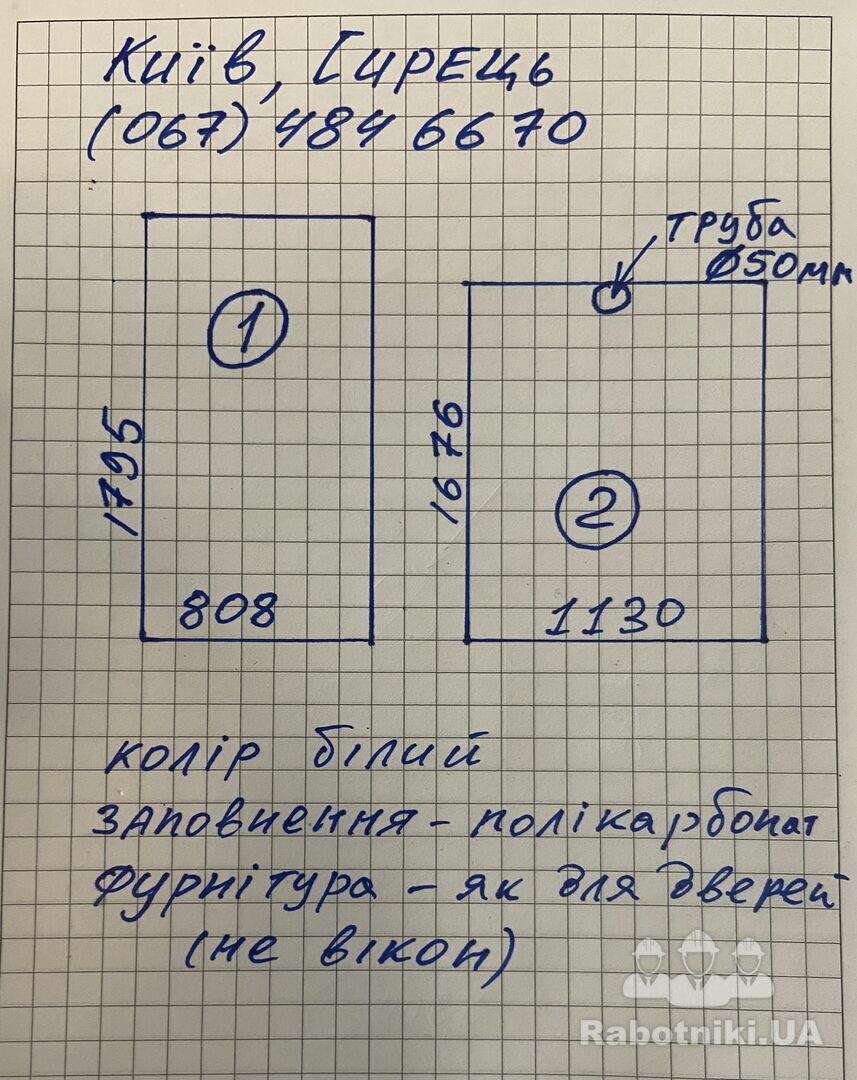 Київ, Сирець
(067) 484 66 70
труба
Ø50мм
1
1795
808
1676
2
1130
колір білий
заповнення - полікарбонат
фурнітура - як для дверей
(не вікон)
Rabotniki.UA